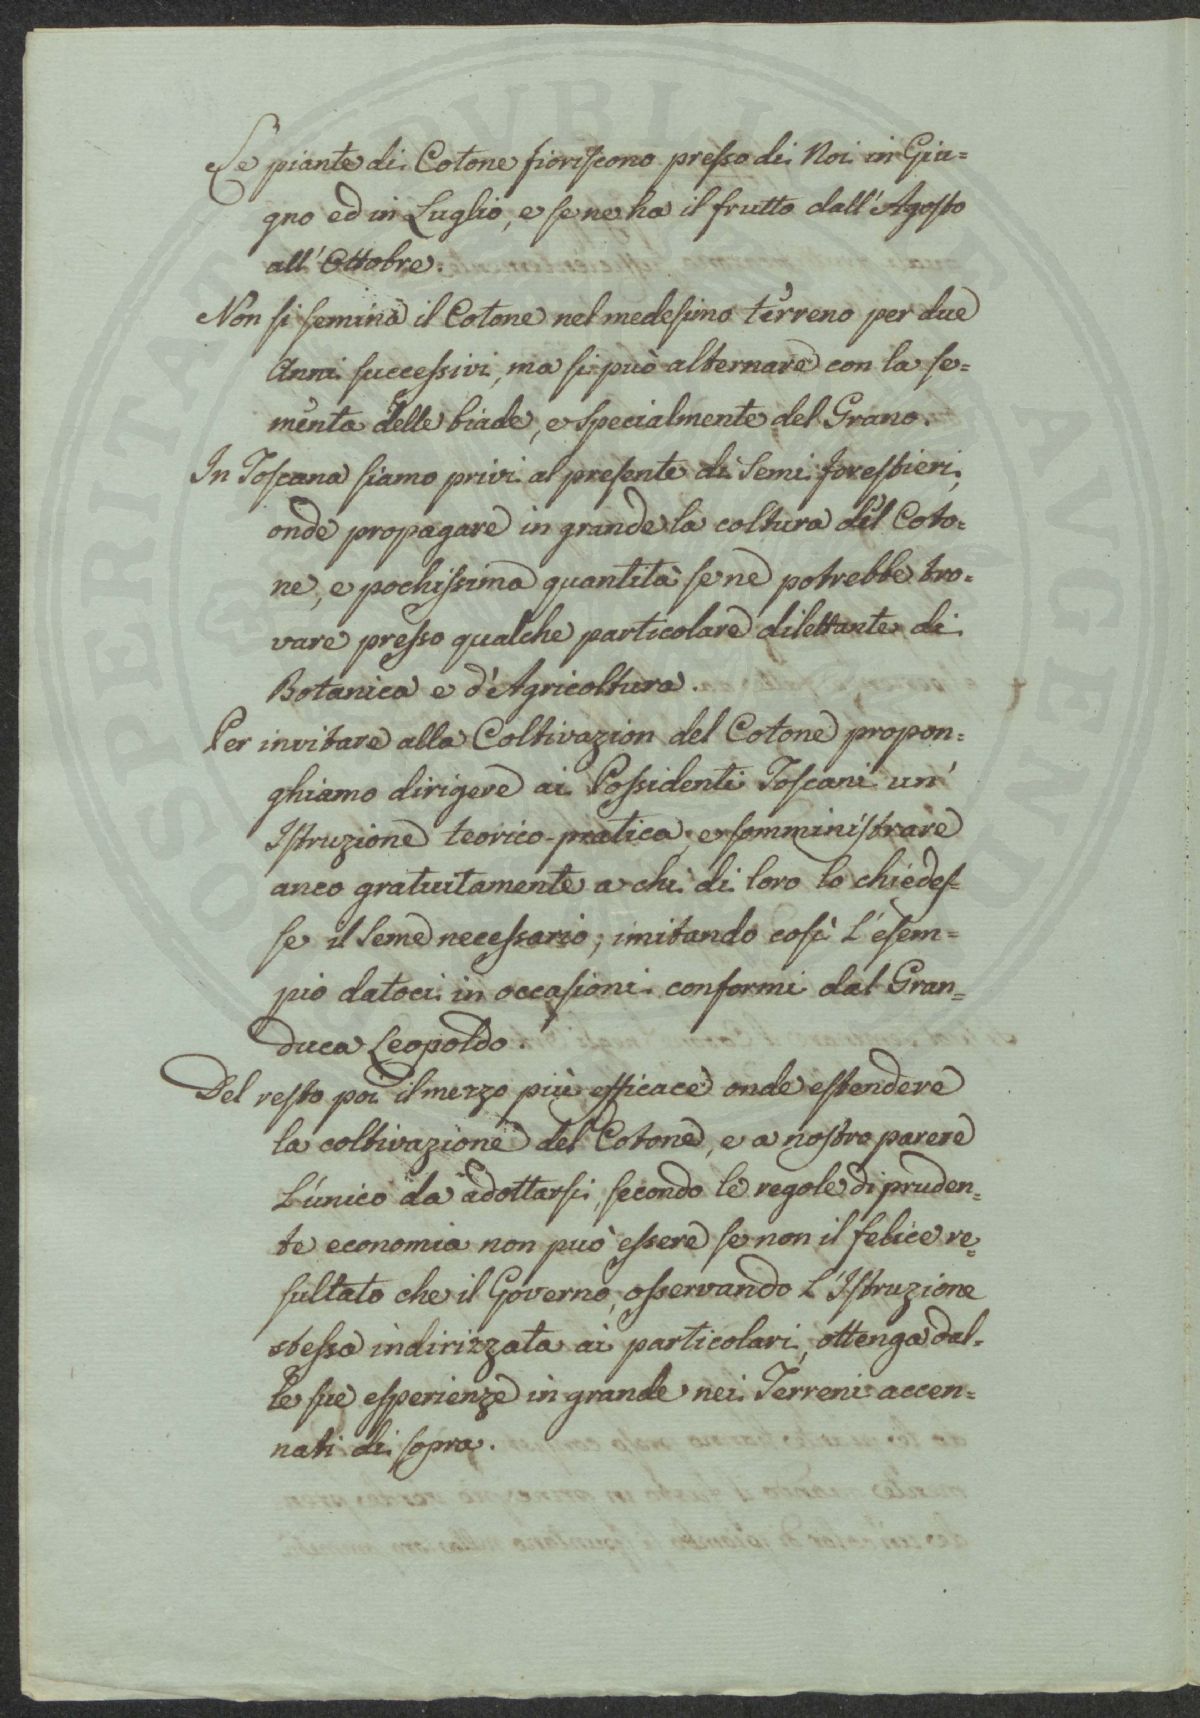 Le piante di Cotone fioriscono presso di Noi in Giu=
gno ed in Luglio, e se ne ha il frutto dall'Agosto
all'Ottobre.
Non si semina il Cotone nel medesimo terreno per due
Anni successivi, ma si può alternare con la se=
menta delle biade, e specialmente del Grano.
In Toscana siamo privi al presente di Semi forestieri,
onde propagare in grande la coltura del Coto=
ne, e pochissima quantità se ne potrebbe tro=
vare presso qualche particolare dilettante di
Botanica e d'Agricoltura.
Per invitare alla Coltivazion del Cotone propon=
ghiamo dirigere ai Possidenti Toscani un'
Istruzione teorico-pratica, e somministrare
anco gratuitamente a chi di loro lo chiedes=
se il Seme necessario; imitando così l'esem=
pio datoci in occasioni conformi dal Gran=
duca Leopoldo.
Del resto poi il mezzo più efficace onde estendere
la coltivazione del Cotone, e a nostro parere
l'unico da adottarsi, secondo le regole di pruden=
te economia non può essere se non il felice re=
sultato che il Governo, osservando l'Istruzione
stessa indirizzata ai particolari, ottenga dal=
le sue esperienze in grande nei Terreni accen=
nati di sopra.